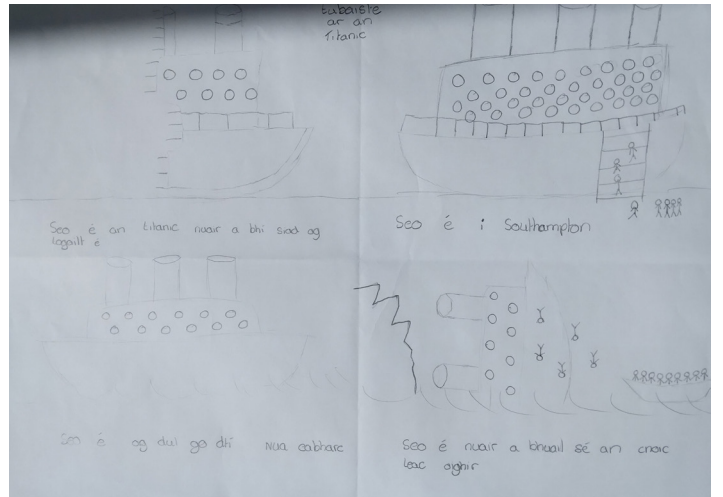 tubaiste
ar an
Titanic
Seo é an titanic nuair a bhi siad ag
logailt é
Seo é i Southampton
Seo é ag dul go dtí Nua eabharc
Seo é nuair a bhuail sé an cnoic
leac oighir